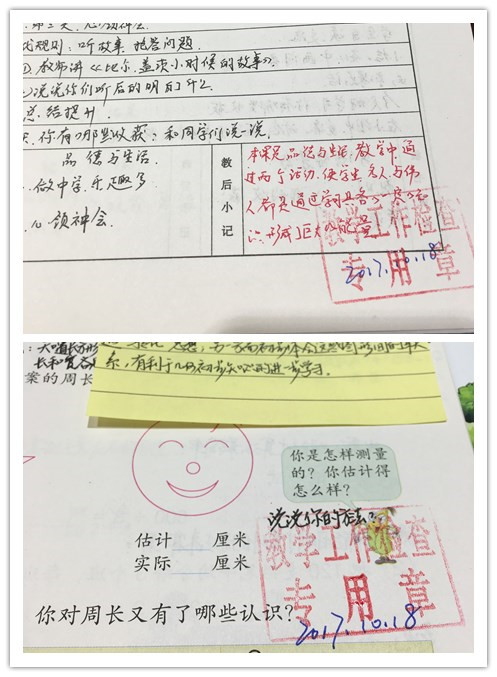 戏规则：听故事，抢答问题。
①. 教师讲《比尔.盖茨小时候的故事》。
②说说你们听后的明白了什么
总结提升
你有哪些收获？和同学们说一说。
品德与生活
做中学.乐趣多
心领神会.
教后小记
本课是品德与生活，教学中通
过两个活动，使学生
人都是通过学习具备
形成了巨大的能量
教学工作检查
专用章
2017.10.18
系，有利于几何初步知识的进一步学习。
长和宽
案的周长
你是怎样测量
的？你估计得
怎么样？
说说你的方法？
估计 厘米
实际 厘米
教学工作检查
专用章
你对周长又有了哪些认识？
2017.10.18